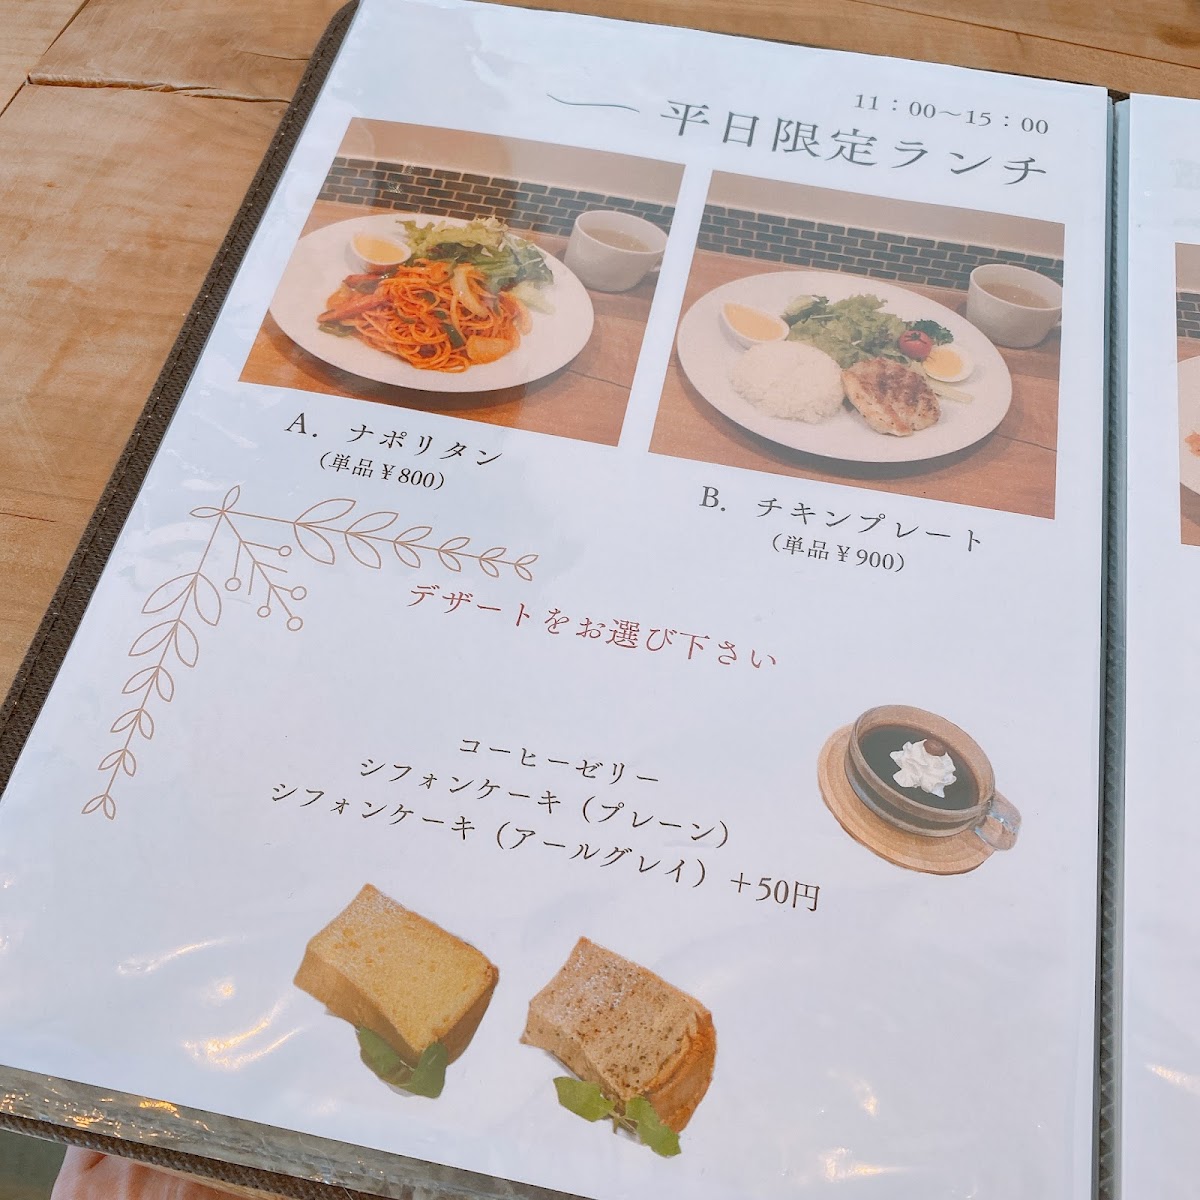 11:00〜15:00
平日限定ランチ
A. ナポリタン
(単品¥800)
B. チキンプレート
(単品¥900)
デザートをお選び下さい
コーヒーゼリー
シフォンケーキ(プレーン)
シフォンケーキ(アールグレイ)+50円